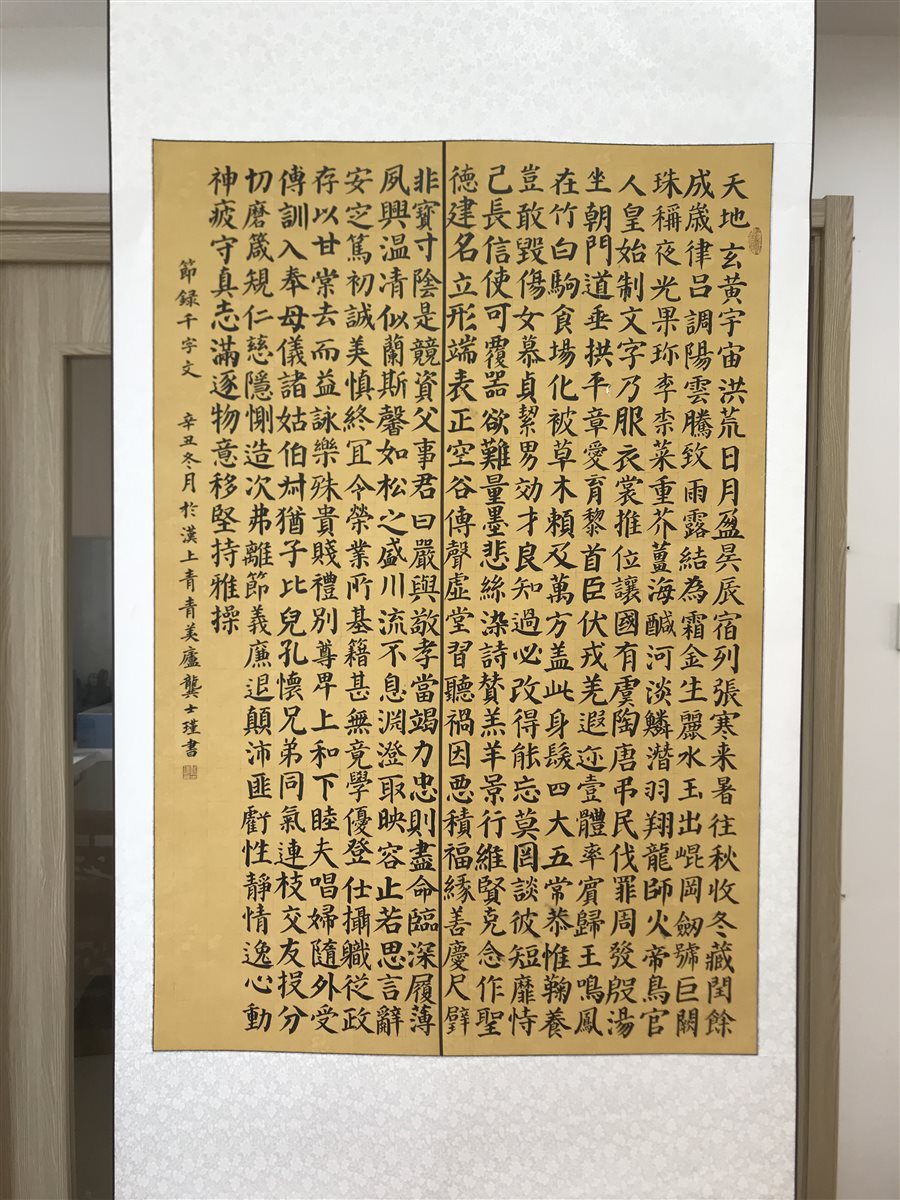 天地玄黃宇宙洪荒日月盈昃辰宿列張寒来暑往秋收冬藏閏餘
成歲律呂調陽雲騰致雨露結為霜金生麗水玉出崐岡劒號巨闕
珠稱夜光果珍李柰菜重芥薑海鹹河淡鱗潛羽翔龍師火帝鳥官
人皇始制文字乃服衣裳推位讓國有虞陶唐弔民伐罪周發殷湯
坐朝問道垂拱平章愛育黎首臣伏戎羌遐迩壹體率賓歸王鳴鳳
在竹白駒食場化被草木賴及萬方盖此身髮四大五常恭惟鞠養
豈敢毀傷女慕貞絜男効才良知過必改得能忘莫罔談彼短靡恃
己長信使可覆器欲難量墨悲絲染詩贊羔羊景行維賢克念作聖
德建名立形端表正空谷傳聲虛堂習聽禍因惡積福緣善慶尺璧
非寶寸陰是競資父事君曰嚴與敬孝當竭力忠則盡命臨深履薄
夙興温凊似蘭斯馨如松之盛川流不息淵澄取映容止若思言辭
安定篤初誠美慎終冝令榮業所基籍甚無竟學優登仕攝職従政
存以甘棠去而益詠樂殊貴賤禮別尊卑上和下睦夫唱婦隨外受
傳訓入奉母儀諸姑伯叔猶子比兒孔懷兄弟同氣連枝交友投分
切磨箴規仁慈隱惻造次弗離節義廉退顛沛匪虧性靜情逸心動
神疲守真志滿逐物意移堅持雅操
節録千字文 辛丑冬月於漢上青青美廬龔士瑾書